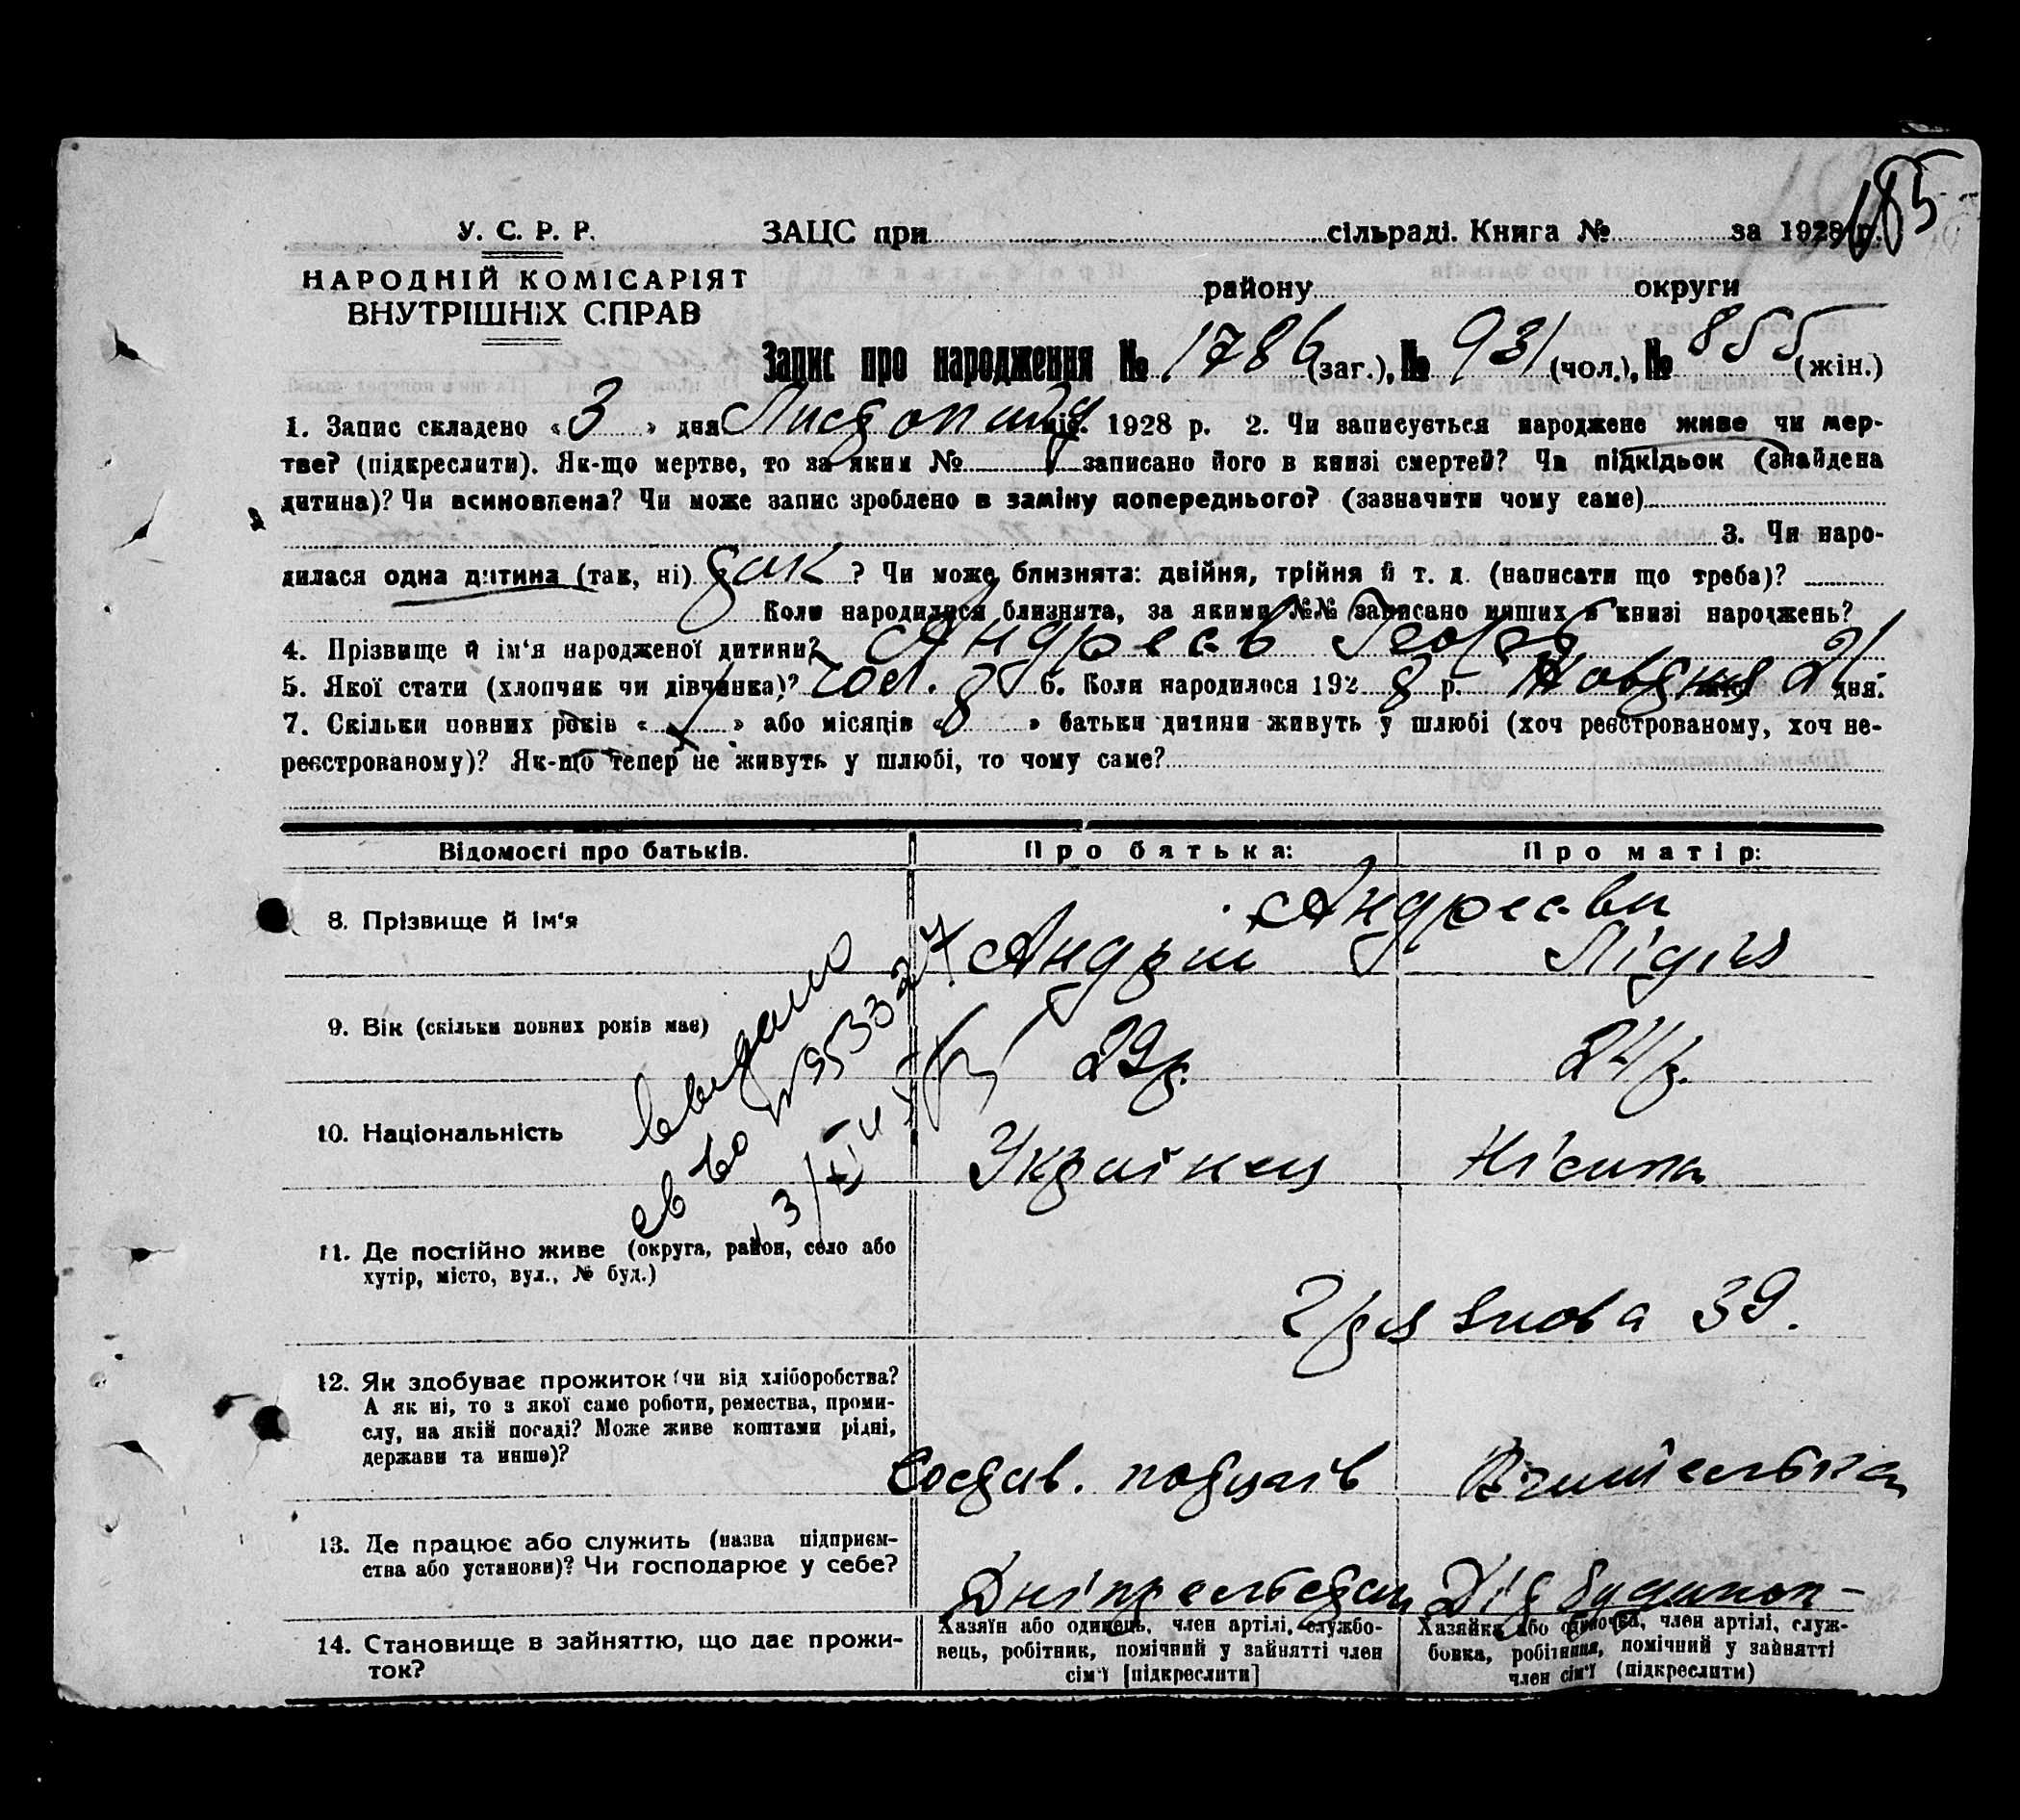 185
У. С. Р. Р.
НАРОДНІЙ КОМІСАРІЯТ
ВНУТРІШНІХ СПРАВ
ЗАЦС при сільраді. Книга № за 1928 р.
району округи
Запис про народження № 1786 (заг.), № 931 (чол.), № 855 (жін.)
1. Запис складено «3» дня Листопада міс. 1928 р. 2. Чи записується народжене живе чи мер-
тве? (підкреслити). Як-що мертве, то за яким № записано його в книзі смертей? Чи підкідьок (знайдена
дитина)? Чи всиновлена? Чи може запис зроблено в заміну попереднього? (зазначити чому саме)
3. Чи наро-
дилася одна дитина (так, ні) так ? Чи може близнята: двійня, трійня й т. д. (написати що треба)?
Коли народилися близнята, за якими №№ записано инших в книзі народжень?
4. Прізвище й ім'я народженої дитини? Андреєв
5. Якої стати (хлопчик чи дівчинка)? чол. 6. Коли народилося 1928 р. Жовтня 21 дня.
7. Скільки повних років « » або місяців « » батьки дитини живуть у шлюбі (хоч реєстрованому, хоч не-
реєстрованому)? Як-що тепер не живуть у шлюбі, то чому саме?
Відомості про батьків. Про батька: Про матір:
8. Прізвище й ім'я Андреєви
Андрій Лідія
9. Вік (скільки повних років має) 29 р. 24 р.
видано
св во №953327
10. Національність Українец Німка
11. Де постійно живе (округа, район, село або
хутір, місто, вул., № буд.)
39.
12. Як здобуває прожиток (чи від хліборобства?
А як ні, то з якої саме роботи, ремества, проми-
слу, на якій посаді? Може живе коштами рідні,
держави та инше)?
Состав. Вчителька
13. Де працює або служить (назва підприєм-
ства або установи)? Чи господарює у себе?
Дніпрельстан Діт будинок
14. Становище в зайняттю, що дає прожи-
ток?
Хазяїн або одинець, член артілі, службо-
вець, робітник, помічний у зайнятті член
сім'ї [підкреслити]
Хазяйка або одиночка, член артілі, служ-
бовка, робітниця, помічний у зайнятті
член сім'ї (підкреслити)